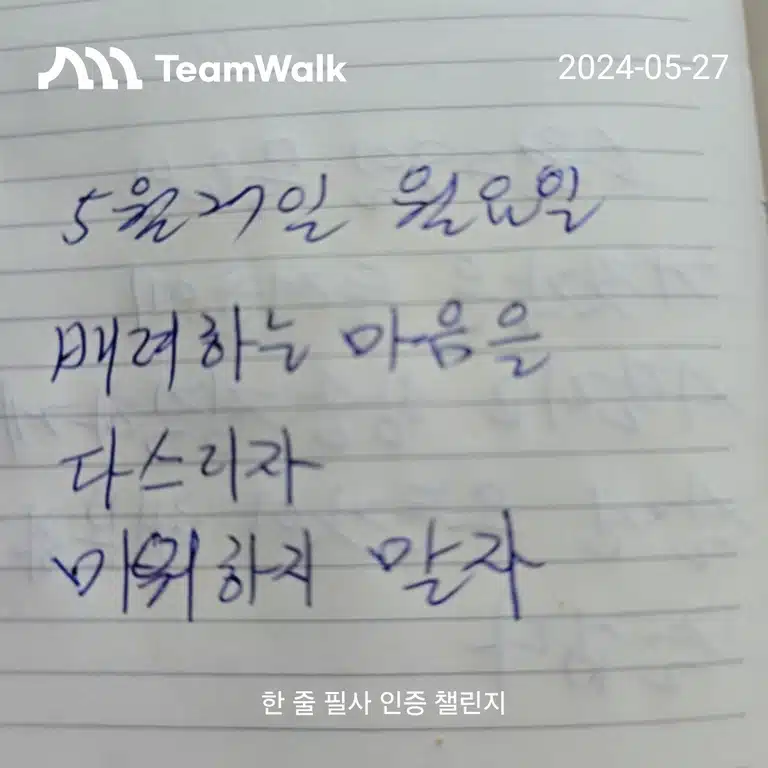 TeamWalk
2024-05-27
5월 27일 월요일
배려하는 마음을
다스리자
미워하지 말자
한 줄 필사 인증 챌린지